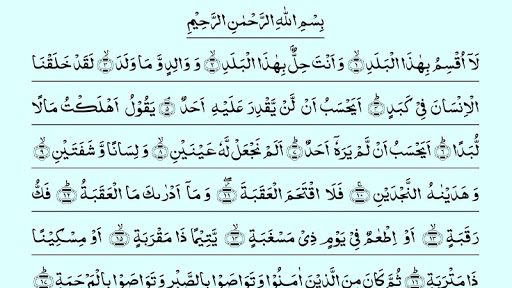 بِسْمِ اللّٰهِ الرَّحْمٰنِ الرَّحِيْمِ
لَاۤ اُقْسِمُ بِهٰذَا الْبَلَدِ ۝١ وَ اَنْتَ حِلٌّۢ بِهٰذَا الْبَلَدِ ۝٢ وَ وَالِدٍ وَّ مَا وَلَدَ ۝٣ لَقَدْ خَلَقْنَا
الْاِنْسَانَ فِيْ كَبَدٍ ۝٤ اَيَحْسَبُ اَنْ لَّنْ يَّقْدِرَ عَلَيْهِ اَحَدٌ ۝٥ يَقُوْلُ اَهْلَكْتُ مَالًا
لُّبَدًا ۝٦ اَيَحْسَبُ اَنْ لَّمْ يَرَهٗۤ اَحَدٌ ۝٧ اَلَمْ نَجْعَلْ لَّهٗ عَيْنَيْنِ ۝٨ وَ لِسَانًا وَّ شَفَتَيْنِ ۝٩
وَ هَدَيْنٰهُ النَّجْدَيْنِ ۝١٠ فَلَا اقْتَحَمَ الْعَقَبَةَ ۝١١ وَ مَاۤ اَدْرٰىكَ مَا الْعَقَبَةُ ۝١٢ فَكُّ
رَقَبَةٍ ۝١٣ اَوْ اِطْعٰمٌ فِيْ يَوْمٍ ذِيْ مَسْغَبَةٍ ۝١٤ يَّتِيْمًا ذَا مَقْرَبَةٍ ۝١٥ اَوْ مِسْكِيْنًا
ذَا مَتْرَبَةٍ ۝١٦ ثُمَّ كَانَ مِنَ الَّذِيْنَ اٰمَنُوْا وَ تَوَاصَوْا بِالصَّبْرِ وَ تَوَاصَوْا بِالْمَرْحَمَةِ ۝١٧